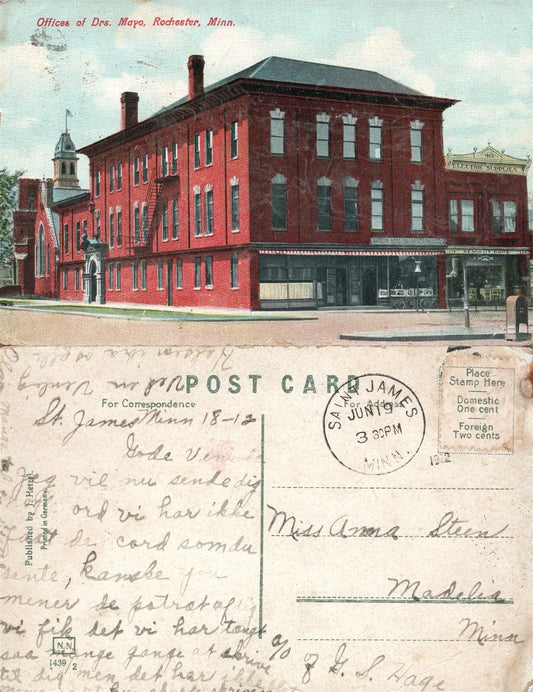 Offices of Drs. Mayo, Rochester, Minn.
ELECTRIC SUPPLIES
POST CARD
For Correspondence
For Address
Place
Stamp Here
Domestic
One cent
Foreign
Two cents
SAINT JAMES
JUN 19
3 30PM
MINN.
Published by J. Herzl.
Printed in Germany.
N.N.
1439/2
St. James Minn 18-12
Gode
Jeg vil nu sende dig
ord vi har ikke
de cord som du
sente, kanske
mener de potræt af dig
vi fik det vi har tængt
saa mange gange at skrive
til dig men det har ikke
Miss Anna Steen
Madelia
Minn
c/o
of G. S. Hage